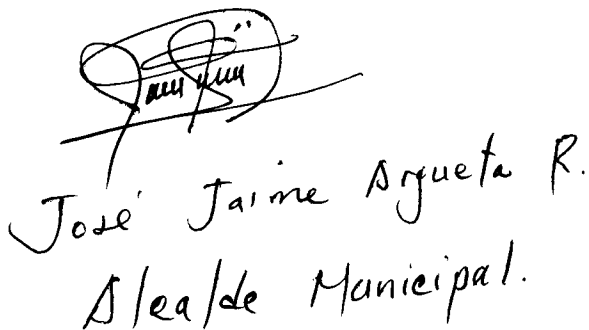 José Jaime Argueta R.
Alcalde Municipal.